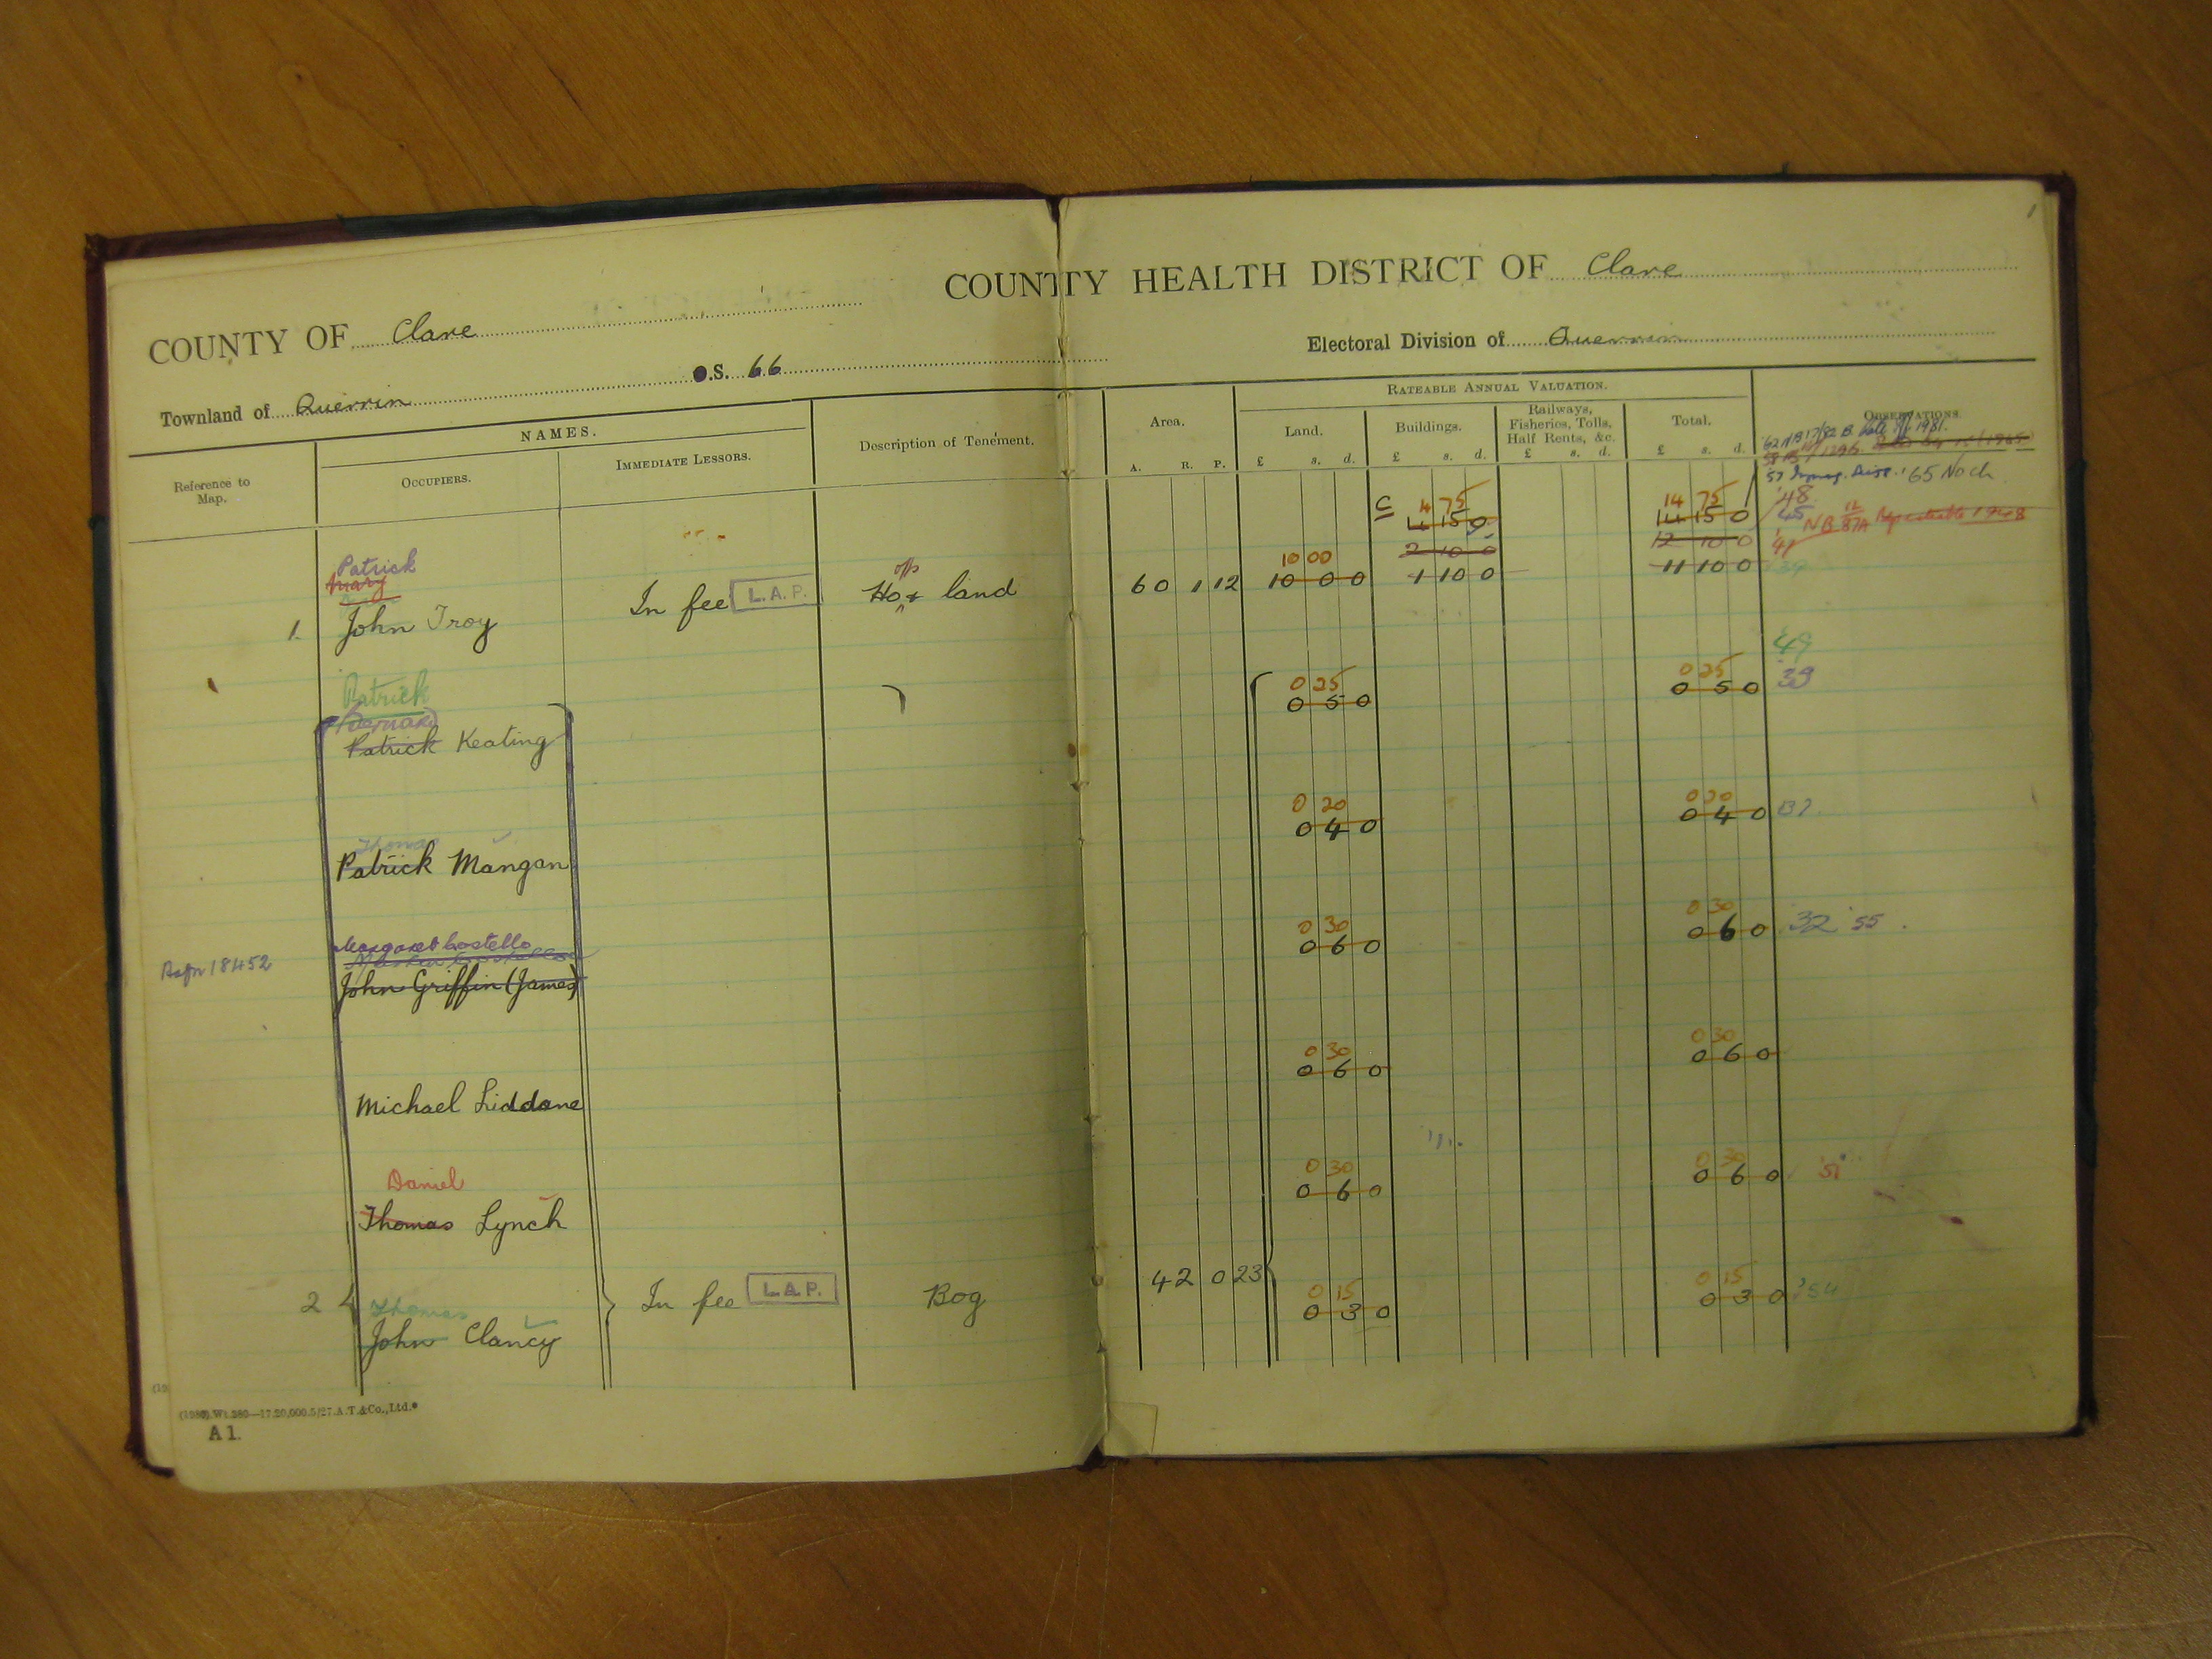 1
COUNTY HEALTH DISTRICT OF Clare
COUNTY OF Clare
Electoral Division of Querrin
Townland of Querrin O.S. 66
Reference to Map.
NAMES.
OCCUPIERS.
IMMEDIATE LESSORS.
Description of Tenement.
Area.
A. R. P.
RATEABLE ANNUAL VALUATION.
Land.
£ s. d.
Buildings.
£ s. d.
Railways, Fisheries, Tolls, Half Rents, &c.
£ s. d.
Total.
£ s. d.
OBSERVATIONS
1981.
'65 No ch
C 4 75 14 75 '48
4 15 0 14 15 0 '45 NB 12/87A 1948
2 10 0 12 10 0 '41
Patrick
Mary
1. John Troy In fee L.A.P. Ho offs & land 60 1 12 10 00
10 0 0 1 10 0 11 10 0
Patrick 0 25 0 25 49
Patrick Keating 0 5 0 0 5 0 '39
Thomas 0 20 0 20
Patrick Mangan 0 4 0 0 4 0 '37
Margaret Costello 0 30 0 30
18452 John Griffin (James) 0 6 0 0 6 0 '32 '55
0 30 0 30
Michael Liddane 0 6 0 0 6 0
Daniel 0 30 0 30
Thomas Lynch 0 6 0 0 6 0 '51
Thomas 0 15 0 15
2 John Clancy In fee L.A.P. Bog 42 0 23 0 3 0 0 3 0 '54
(1980).Wt.380—17.20,000.5/27.A.T.&Co.,Ltd.
A 1.